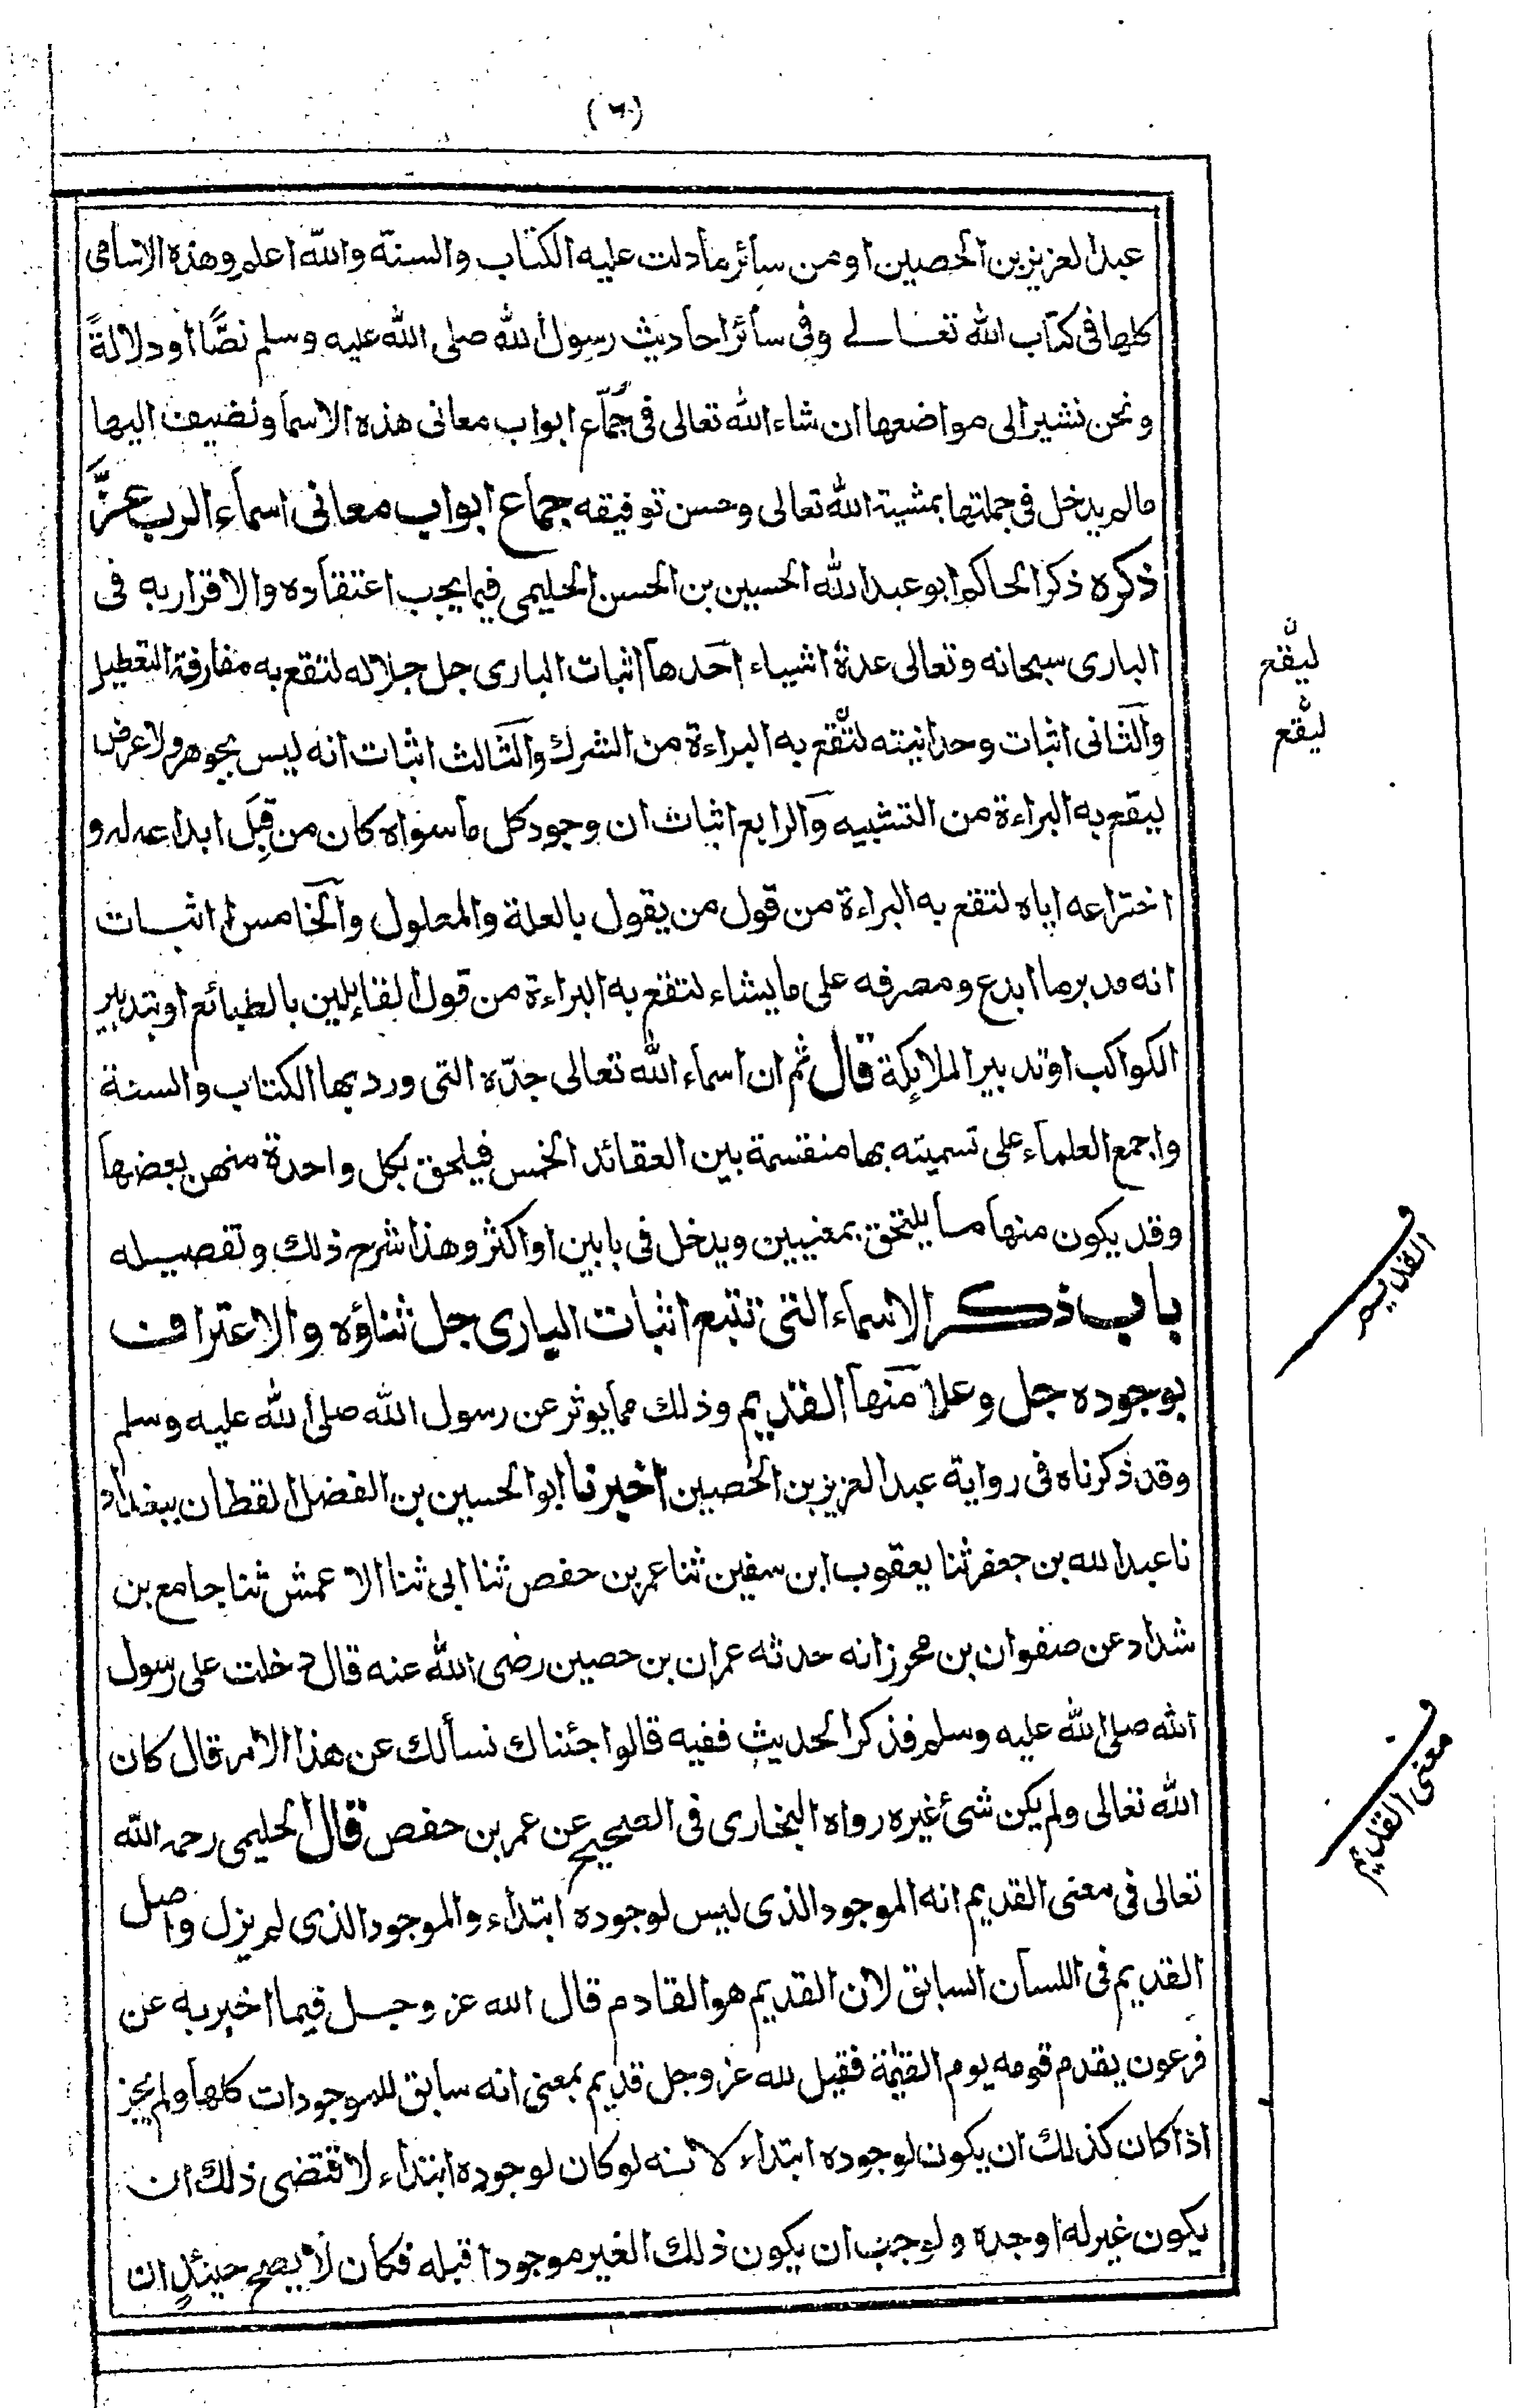 (٦)
عبد العزيز بن الحصين او من سائر ما دلت عليه الكتاب والسنة والله اعلم وهذه الاسامى
كلها فى كتاب الله تعالى وفى سائر احاديث رسول الله صلى الله عليه وسلم نصًّا او دلالةً
ونحن نشير الى مواضعها ان شاء الله تعالى فى جمّاع ابواب معانى هذه الاسما ونضيف اليها
مالم يدخل فى جملتها بمشية الله تعالى وحسن توفيقه جماع ابواب معانى اسماء الرب عزّ
ذكره ذكر الحاكم ابو عبد الله الحسين بن الحسن الحليمى فيما يجب اعتقاده والاقرار به فى
البارى سبحانه وتعالى عدة اشياء احدها اثبات البارى جل جلاله لتقع به مفارقة التعطيل
ليقع
والثانى اثبات وحدانيته لتقع به البراءة من الشرك والثالث اثبات انه ليس بجوهر ولا عرض
ليقع
ليقع به البراءة من التشبيه والرابع اثبات ان وجود كل ما سواه كان من قِبَل ابداعه له و
اختراعه اياه لتقع به البراءة من قول من يقول بالعلة والمعلول والخامس اثبات
انه مدبر ما ابدع ومصرفه على ما يشاء لتقع به البراءة من قول القائلين بالطبائع او بتدبير
الكواكب او تدبير الملائكة قال ثم ان اسماء الله تعالى جدّه التى ورد بها الكتاب والسنة
واجمع العلماء على تسميته بها منقسمة بين العقائد الخمس فيلحق بكل واحدة منهن بعضها
وقد يكون منها ما يلتحق بمعنيين ويدخل فى بابين او اكثر وهذا شرح ذلك وتفصيله
باب ذكر الاسماء التى تتبع اثبات البارى جل ثناؤه والاعتراف
القديم
بوجوده جل وعلا منها القديم وذلك مما يوثر عن رسول الله صلى الله عليه وسلم
وقد ذكرناه فى رواية عبد العزيز بن الحصين اخبرنا ابو الحسين بن الفضل القطان ببغداد
نا عبد الله بن جعفر ثنا يعقوب ابن سفين ثنا عمر بن حفص ثنا ابى ثنا الاعمش ثنا جامع بن
شداد عن صفوان بن محرز انه حدثه عمران بن حصين رضى الله عنه قال دخلت على رسول
الله صلى الله عليه وسلم فذكر الحديث ففيه قالوا جئناك نسألك عن هذا الامر قال كان
الله تعالى ولم يكن شئ غيره رواه البخارى فى الصحيح عن عمر بن حفص قال الحليمى رحمه الله
معنى القديم
تعالى فى معنى القديم انه الموجود الذى ليس لوجوده ابتداء والموجود الذى لم يزل واصل
القديم فى اللسان السابق لان القديم هو القادم قال الله عز وجل فيما اخبر به عن
فرعون يقدم قومه يوم القيمة فقيل لله عز وجل قديم بمعنى انه سابق للموجودات كلها ولم يجز
اذا كان كذلك ان يكون لوجوده ابتداء لانه لو كان لوجوده ابتداء لاقتضى ذلك ان
يكون غير له اوجده ولوجب ان يكون ذلك الغير موجودا قبله فكان لا يصح حينئذٍ ان